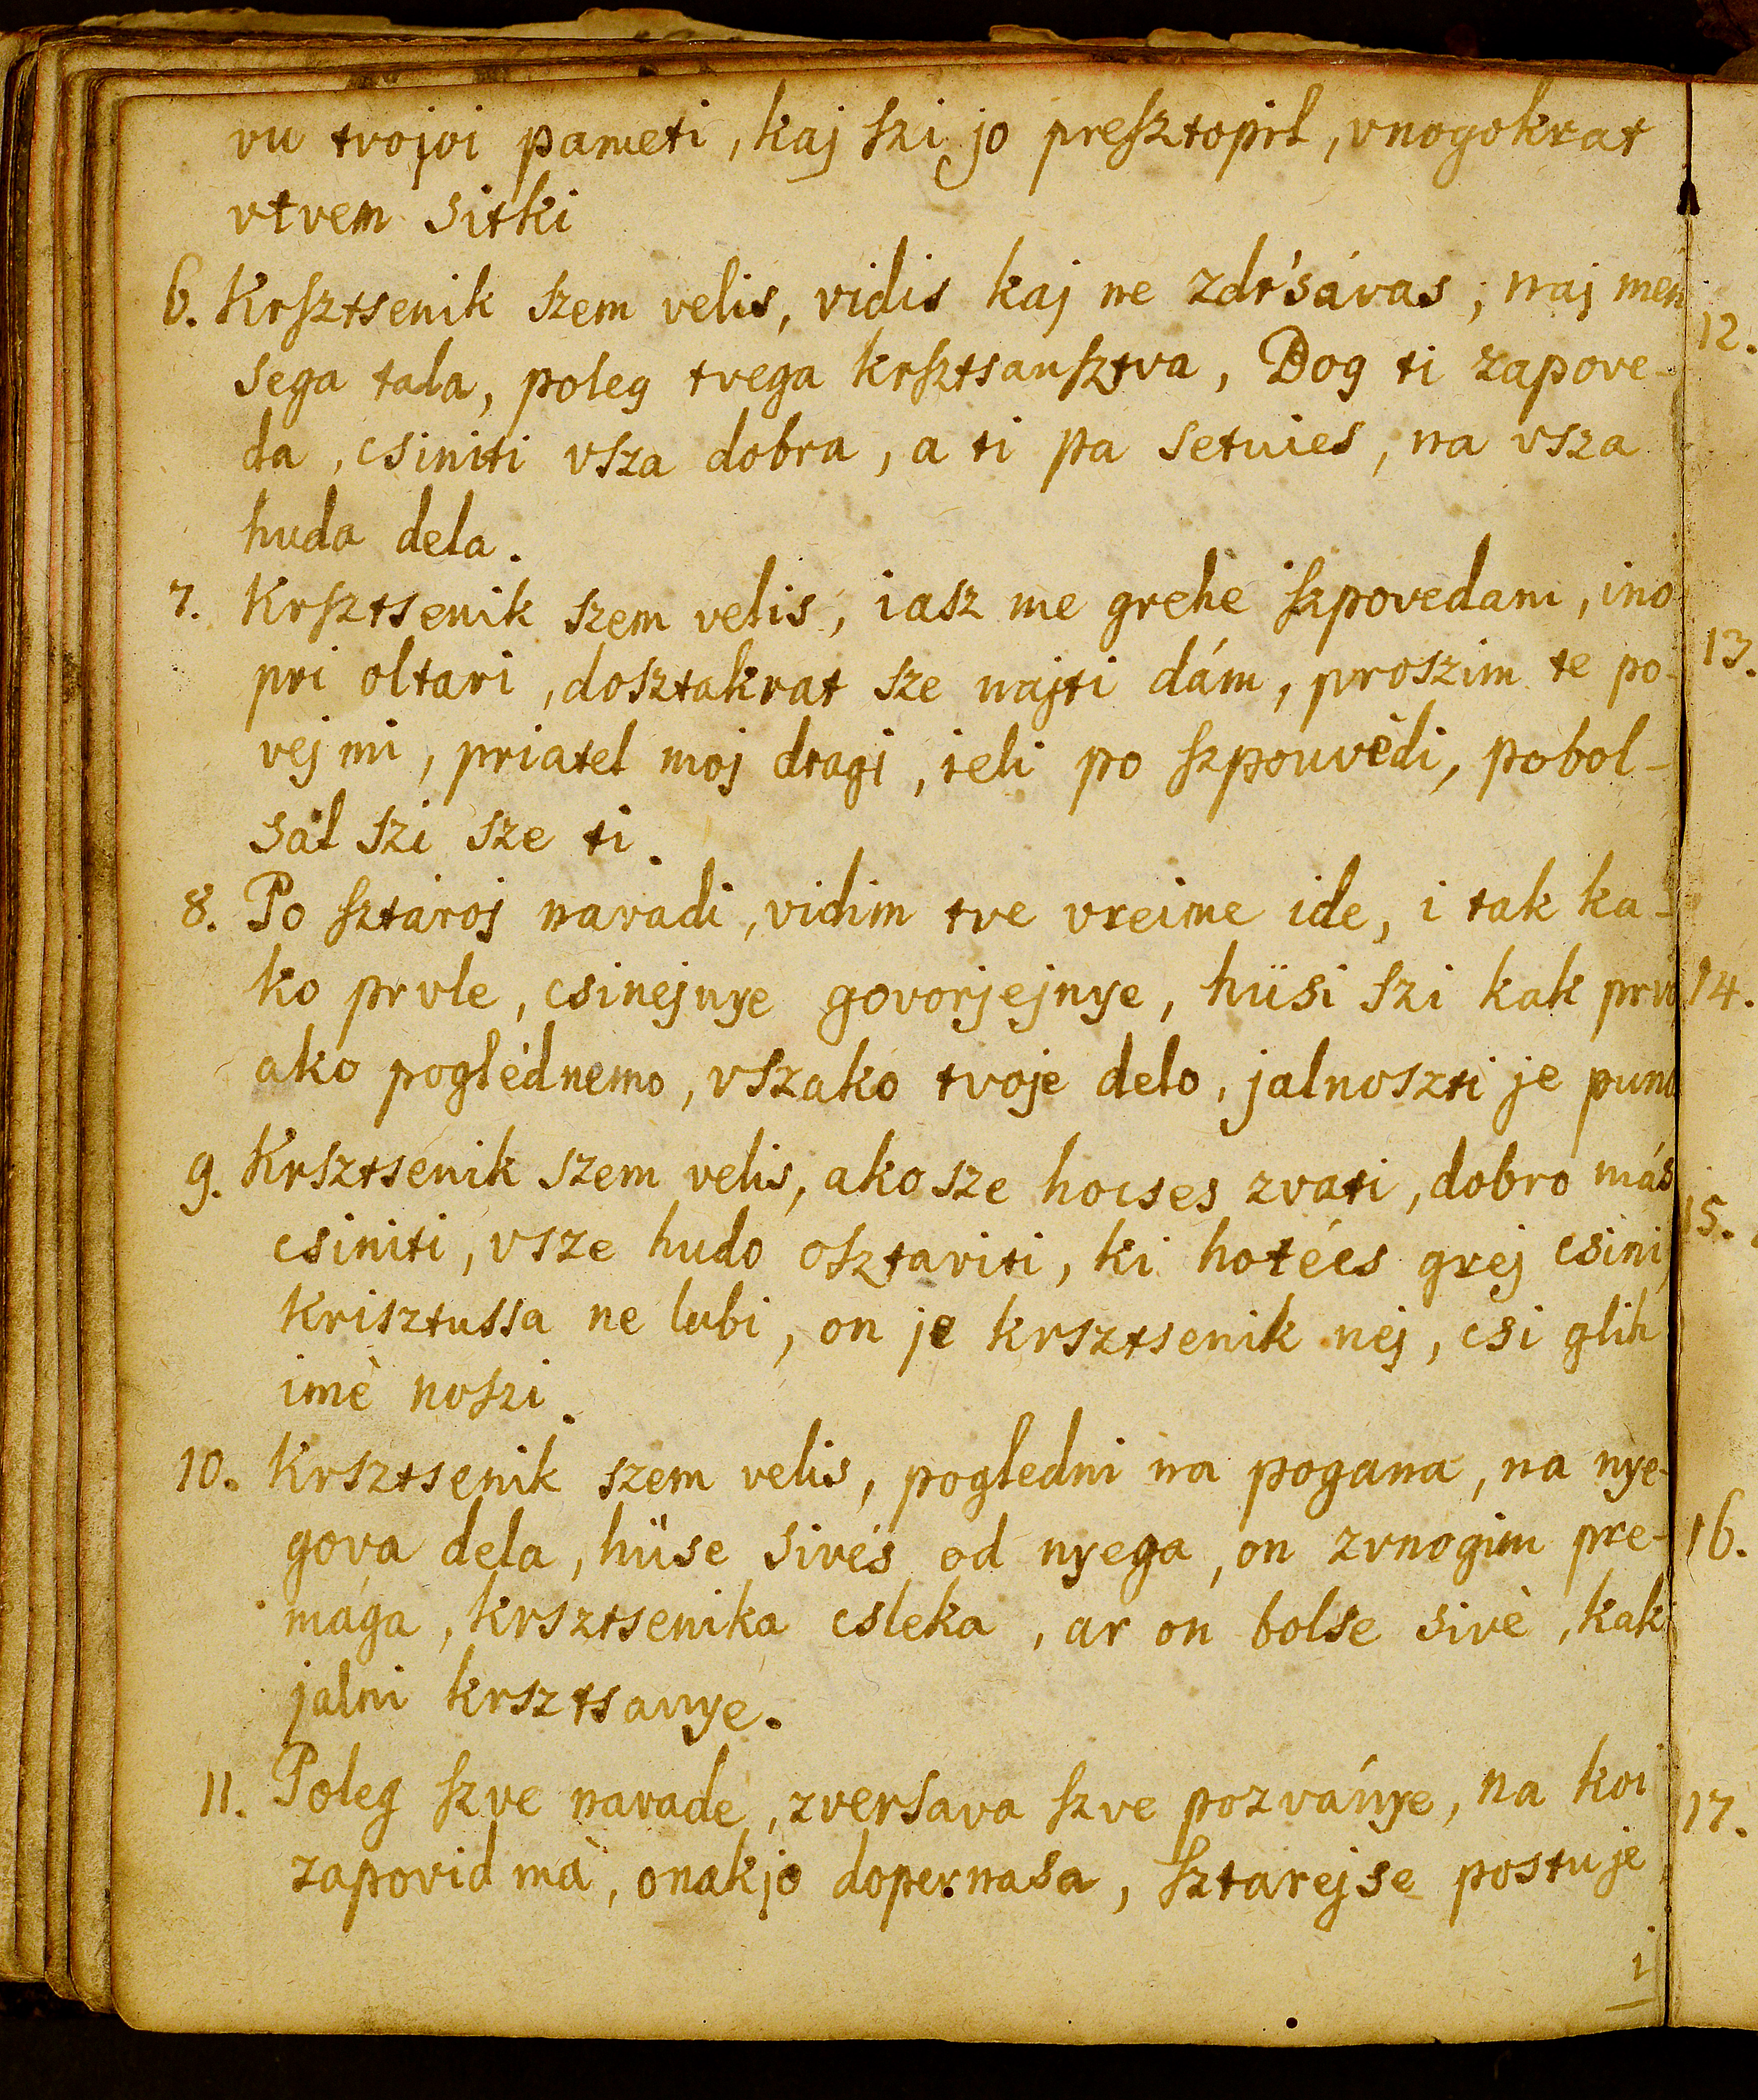 vu tvojoi pameti, kaj ſzi jo preſztopil, vnogokrat
vtvem sitki
6. Krſztsenik ſzem velis, vidis kaj ne zdr'sávas, naj men
sega tala, poleg tvega krſztsanſztva, Bog ti zapove-
da, csiniti vsza dobra, a ti pa setuies, na vsza
huda dela.
7. Krſztsenik szem velis, iasz me grehe ſzpovedam, ino
pri oltari, dosztakrat sze najti dám, proszim te po-
vej mi, priatel moj dragi, ieli po ſzpouvèdi, pobol-
sal szi sze ti.
8. Po ſztároj navadi, vidim tve vreime ide, i tak ka-
ko prvle, csinejnye govorjejnye, hüsi szi kak prvo
ako poglédnemo, vszako tvoje delo, jalnoszti je puno
9. Krsztsénik szem velis, ako sze hocses zvati, dobro más
csiniti, vsze hudo osztaviti, ki hotécs grej csini,
Krisztussa ne lubi, on je krsztsenik nej, csi glih
imè noszi.
10. Krsztsenik szem velis, pogledni na pogana, na nye-
gova dela, hüse sivés od nyega, on zvnogim pre-
mága, krsztsenika csleka, ar on bolse sivè, kak
jalni krsztsanye.
11. Poleg ſzve navade, zversava ſzve pozványe, na koi
zapovid má, onakjo dopernasa, ſztarejse postuje
i
12.
13.
14.
15.
16.
17.